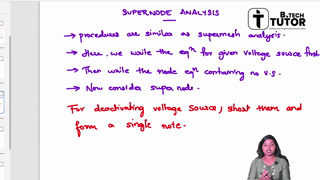 SUPERNODE ANALYSIS
B.TECH
TUTOR
→ procedures are similar as supermesh analysis.
→ Here, we write the eqn for given voltage source first
→ Then write the node eqn containing no V.S.
→ Now consider supernode.
For deactivating voltage source, short them and
form a single note.